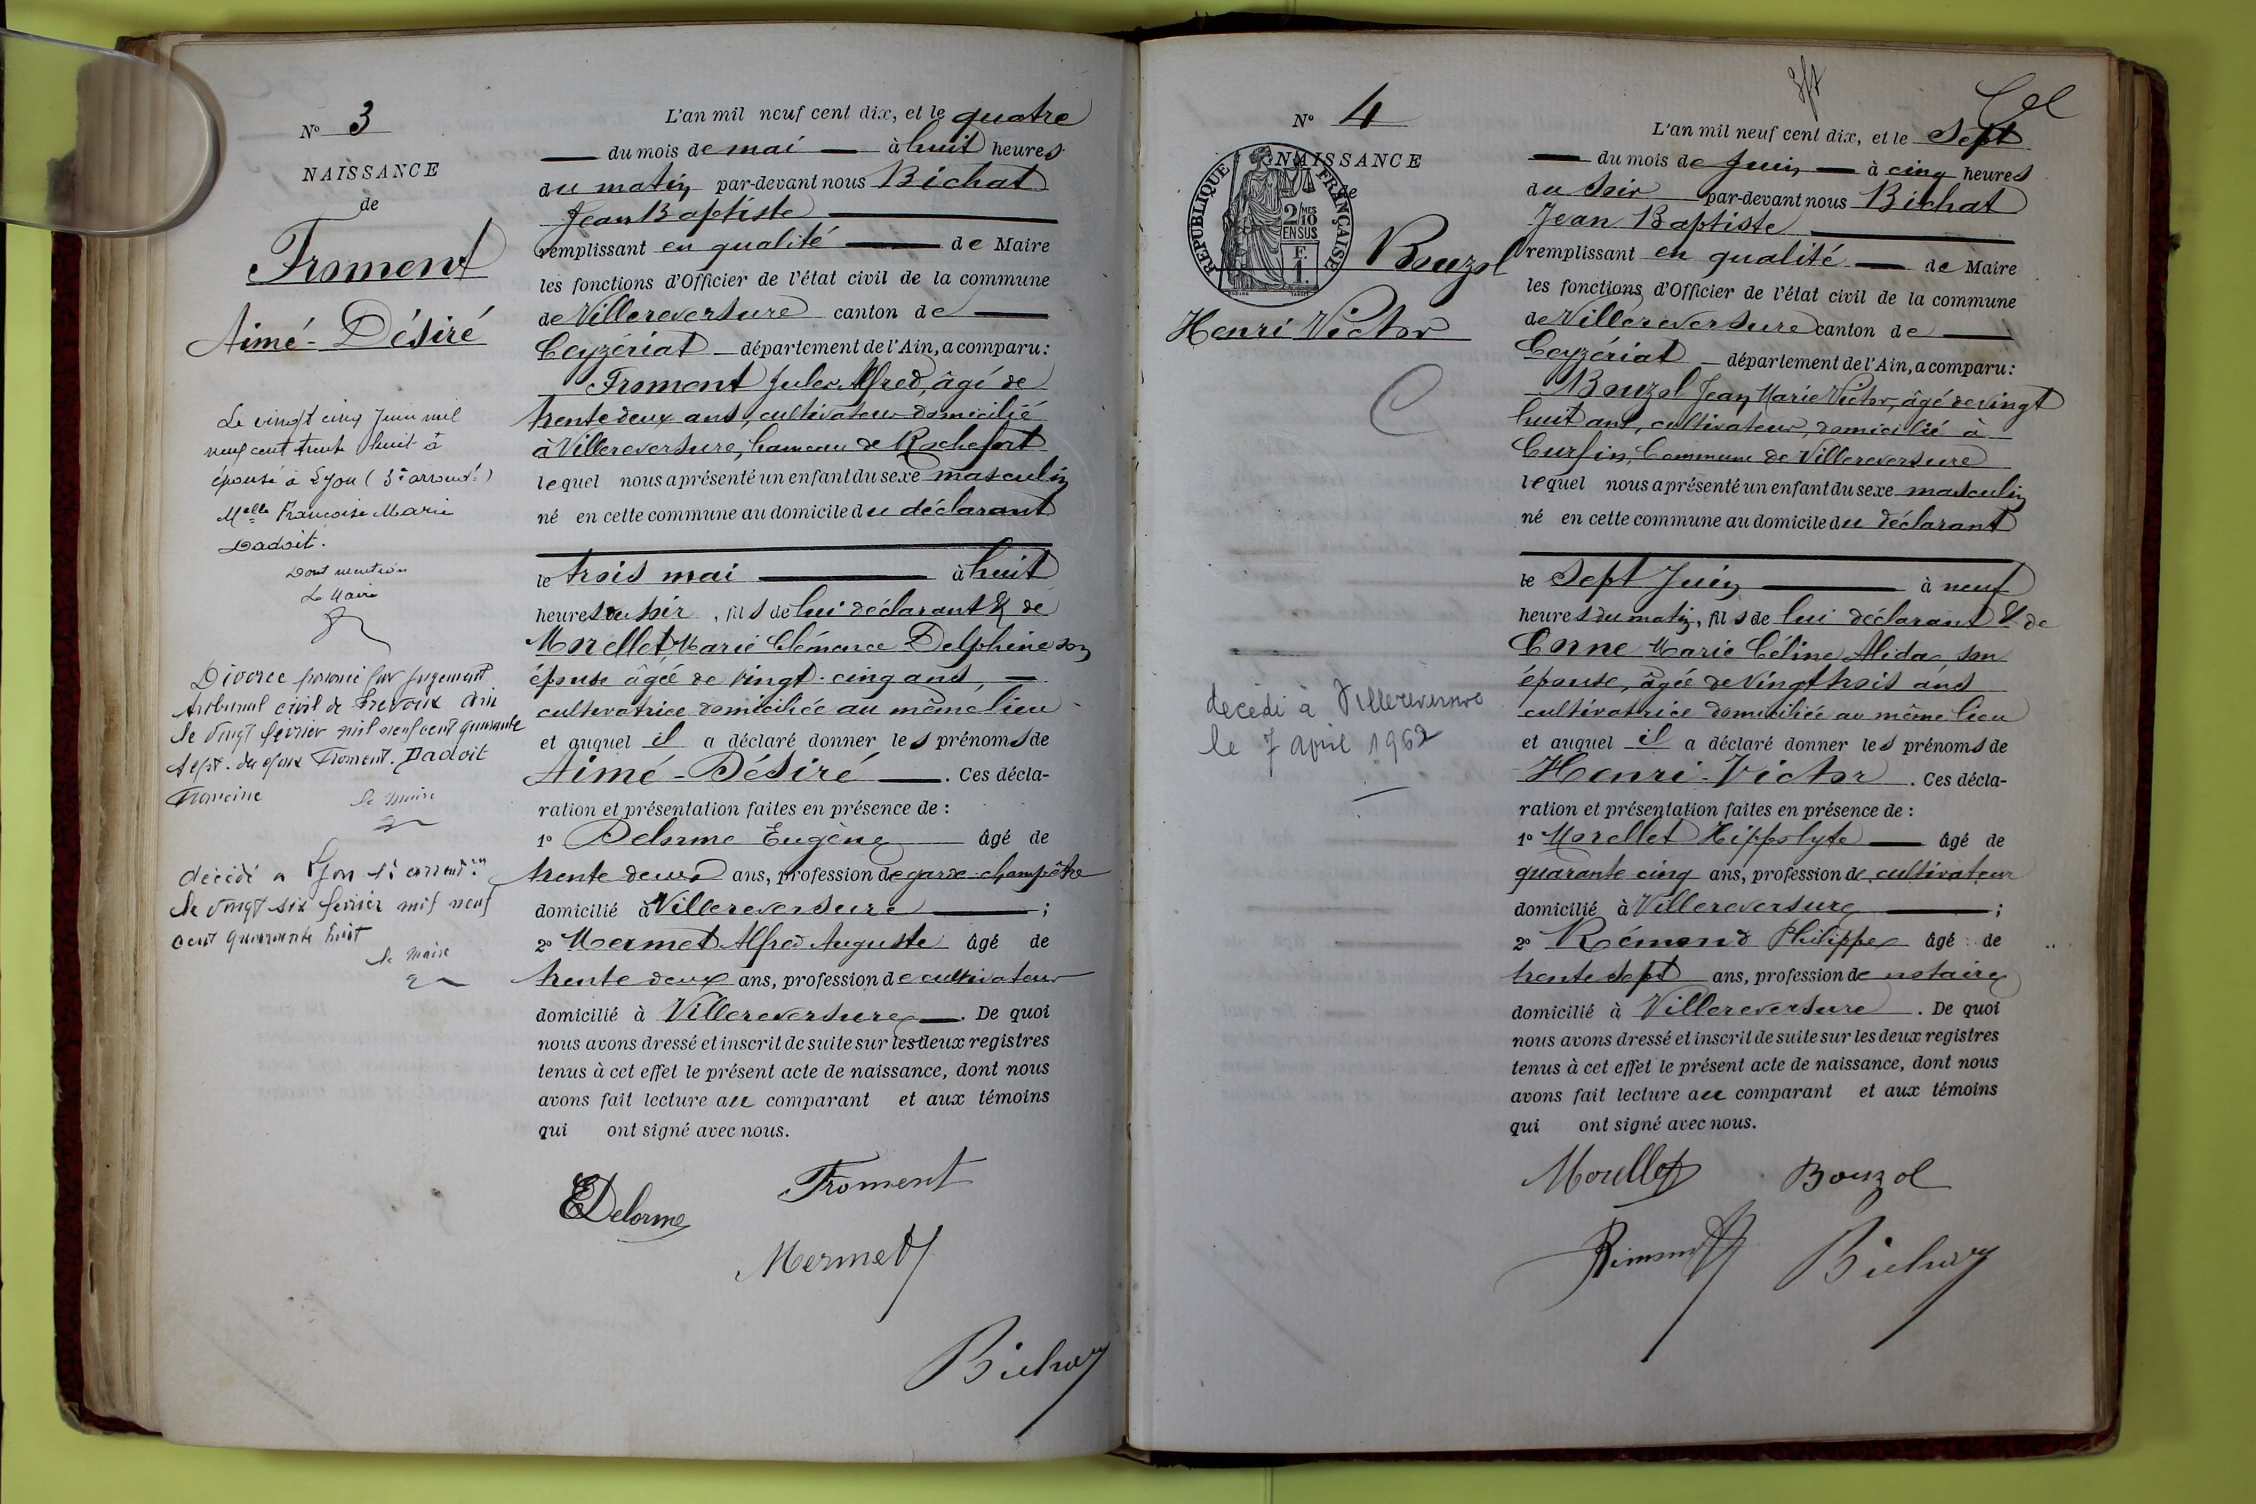 N° 3
NAISSANCE
de
Froment
Aimé-Désiré
Le vingt cinq Juin mil
neuf cent trente huit à
épousé à Lyon (3e arrondt)
Melle Françoise Marie
Dadoit.
Dont mention
Le Maire
Divorce prononcé par jugement
tribunal civil de Trevoux Ain
le vingt février mil neuf cent quarante
sept. des époux Froment. Dadoit
Francine
le maire
décédé a Lyon
le vingt six février mil neuf
cent quarante huit
le maire
L'an mil neuf cent dix, et le quatre
du mois de mai à huit heures
du matin par-devant nous Bichat
Jean Baptiste
remplissant en qualité de Maire
les fonctions d'Officier de l'état civil de la commune
de Villereversure canton de
Ceyzériat département de l'Ain, a comparu:
Froment Jules Alfred, âgé de
trente deux ans, cultivateur domicilié
à Villereversure, hameau de Rochefort
lequel nous a présenté un enfant du sexe masculin
né en cette commune au domicile du déclarant
le trois mai à huit
heures du soir, fils de lui déclarant & de
Morellet, Marie Clémence Delphine son
épouse âgée de vingt-cinq ans,
cultivatrice domiciliée au même lieu
et auquel il a déclaré donner les prénoms de
Aimé-Désiré. Ces décla-
ration et présentation faites en présence de :
1° Delorme Eugène âgé de
trente deux ans, profession de garde-champêtre
domicilié à Villereversure ;
2° Mermet Alfred Auguste âgé de
trente deux ans, profession de cultivateur
domicilié à Villereversure. De quoi
nous avons dressé et inscrit de suite sur les deux registres
tenus à cet effet le présent acte de naissance, dont nous
avons fait lecture au comparant et aux témoins
qui ont signé avec nous.
EDelorme Froment
Mermet
Bichat
N° 4
NAISSANCE
de
RÉPUBLIQUE FRANÇAISE
2/10MES
EN SUS
F.
1.
Bouzol
Henri Victor
C
décédé à Villereversure
le 7 april 1962
L'an mil neuf cent dix, et le sept
du mois de Juin à cinq heures
du soir par-devant nous Bichat
Jean Baptiste
remplissant en qualité de Maire
les fonctions d'Officier de l'état civil de la commune
de Villereversure canton de
Ceyzériat département de l'Ain, a comparu:
Bouzol Jean Marie Victor, âgé de vingt
huit ans, cultivateur, domicilié à
Curfin, Commune de Villereversure
lequel nous a présenté un enfant du sexe masculin
né en cette commune au domicile du déclarant
le sept Juin à neuf
heures du matin, fils de lui déclarant & de
Corne Marie Céline Alida, son
épouse, âgée de vingt trois ans
cultivatrice domiciliée au même lieu
et auquel il a déclaré donner les prénoms de
Henri-Victor. Ces décla-
ration et présentation faites en présence de :
1° Morellet Hippolyte âgé de
quarante cinq ans, profession de cultivateur
domicilié à Villereversure ;
2° Rémond Philippe âgé de
trente sept ans, profession de notaire
domicilié à Villereversure. De quoi
nous avons dressé et inscrit de suite sur les deux registres
tenus à cet effet le présent acte de naissance, dont nous
avons fait lecture au comparant et aux témoins
qui ont signé avec nous.
Morellet Bouzol
Rémond Bichat